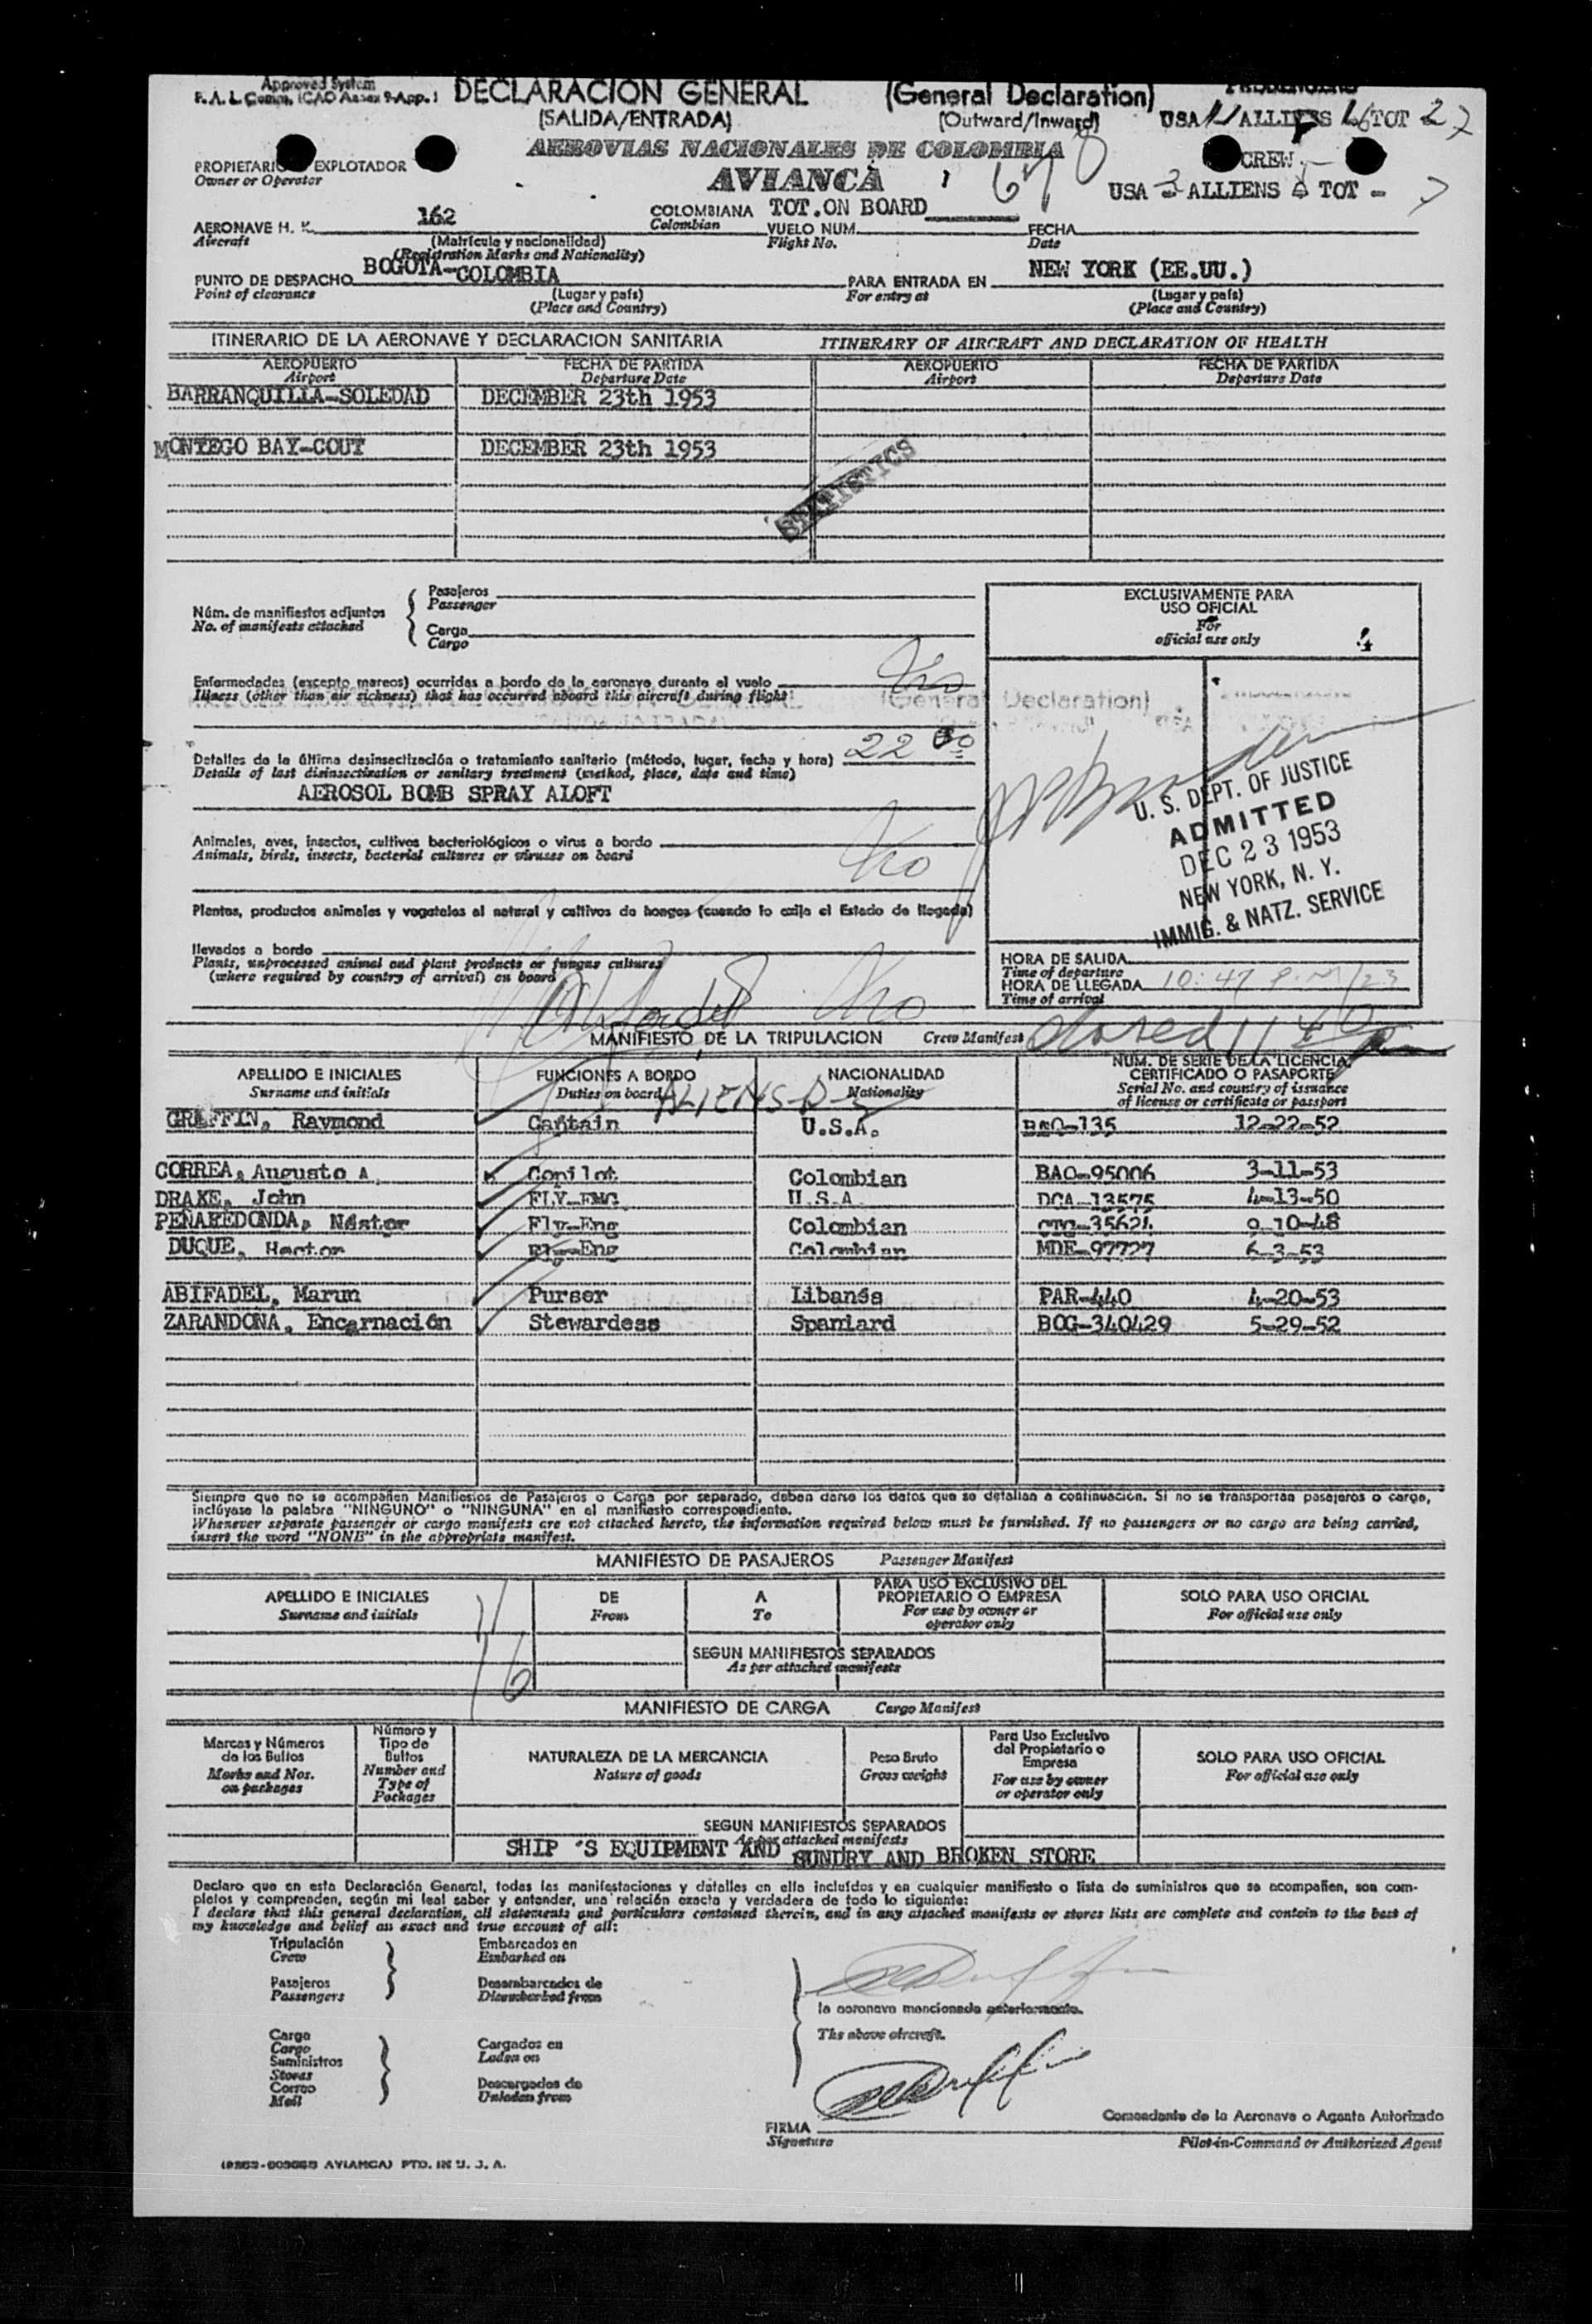 Approved System
F. A. L. Comm. (CAO Annex 9-App. 1
DECLARACION GENERAL (General Declaration)
(SALIDA/ENTRADA) (Outward/Inward)
USA 11 ALLIENS 16 TOT 27
AEROVIAS NACIONALES DE COLOMBIA
AVIANCA
CREW
USA ALLIENS 5 TOT - 7
PROPIETARIO EXPLOTADOR
Owner or Operator
AERONAVE H. K. 162 COLOMBIANA TOT. ON BOARD
Aircraft Colombian
VUELO NUM. FECHA
Flight No. Date
(Matrícula y nacionalidad)
(Registration Marks and Nationality)
PUNTO DE DESPACHO BOGOTA-COLOMBIA PARA ENTRADA EN NEW YORK (EE.UU.)
Point of clearance For entry at
(Lugar y país) (Lugar y país)
(Place and Country) (Place and Country)
ITINERARIO DE LA AERONAVE Y DECLARACION SANITARIA ITINERARY OF AIRCRAFT AND DECLARATION OF HEALTH
AEROPUERTO FECHA DE PARTIDA AEROPUERTO FECHA DE PARTIDA
Airport Departure Date Airport Departure Date
BARRANQUILLA-SOLEDAD DECEMBER 23th 1953
MONTEGO BAY-COUT DECEMBER 23th 1953
STATISTICS
Núm. de manifiestos adjuntos
No. of manifests attached
Pasajeros
Passenger
Carga
Cargo
EXCLUSIVAMENTE PARA
USO OFICIAL
For
official use only
Enfermedades (excepto mareos) ocurridas a bordo de la aeronave durante el vuelo No
Illness (other than air sickness) that has occurred aboard this aircraft during flight
(General Declaration)
Detalles de la última desinsectización o tratamiento sanitario (método, lugar, fecha y hora) 22
Details of last disinsectization or sanitary treatment (method, place, date and time)
AEROSOL BOMB SPRAY ALOFT
U. S. DEPT. OF JUSTICE
ADMITTED
DEC 23 1953
NEW YORK, N. Y.
IMMIG. & NATZ. SERVICE
Animales, aves, insectos, cultivos bacteriológicos o virus a bordo No
Animals, birds, insects, bacterial cultures or viruses on board
Plantas, productos animales y vegetales al natural y cultivos de hongos (cuando lo exija el Estado de llegada)
llevados a bordo No
Plants, unprocessed animal and plant products or fungus cultures
(where required by country of arrival) on board
HORA DE SALIDA
Time of departure
HORA DE LLEGADA 10:47 P.M/23
Time of arrival
MANIFIESTO DE LA TRIPULACION Crew Manifest
APELLIDO E INICIALES FUNCIONES A BORDO NACIONALIDAD NUM. DE SERIE DE LA LICENCIA
Surname and initials Duties on board Nationality CERTIFICADO O PASAPORTE
Serial No. and country of issuance
of license or certificate or passport
ALIENS-D-5
GRIFFIN, Raymond Captain U.S.A. BAQ-135 12-22-52
CORREA, Augusto A. Copilot Colombian BAQ-95006 3-11-53
DRAKE, John FLY-ENG U.S.A. DCA-13575 4-13-50
PEÑAREDONDA, Néstor Fly-Eng Colombian CTG-35621 9-10-48
DUQUE, Hector Fly-Eng Colombian MDE-97727 6-3-53
ABIFADEL, Marun Purser Libanés PAR-440 4-20-53
ZARANDONA, Encarnación Stewardess Spaniard BOG-340429 5-29-52
Siempre que no se acompañen Manifiestos de Pasajeros o Carga por separado, deben darse los datos que se detallan a continuación. Si no se transportan pasajeros o carga,
inclúyase la palabra "NINGUNO" o "NINGUNA" en el manifiesto correspondiente.
Whenever separate passenger or cargo manifests are not attached hereto, the information required below must be furnished. If no passengers or no cargo are being carried,
insert the word "NONE" in the appropriate manifest.
MANIFIESTO DE PASAJEROS Passenger Manifest
APELLIDO E INICIALES DE A PARA USO EXCLUSIVO DEL SOLO PARA USO OFICIAL
Surname and initials From To PROPIETARIO O EMPRESA For official use only
For use by owner or
operator only
11
16
SEGUN MANIFIESTOS SEPARADOS
As per attached manifests
MANIFIESTO DE CARGA Cargo Manifest
Marcas y Números
de los Bultos
Marks and Nos.
on packages
Número y
Tipo de
Bultos
Number and
Type of
Packages
NATURALEZA DE LA MERCANCIA
Nature of goods
Peso Bruto
Gross weight
Para Uso Exclusivo
del Propietario o
Empresa
For use by owner
or operator only
SOLO PARA USO OFICIAL
For official use only
SEGUN MANIFIESTOS SEPARADOS
As per attached manifests
SHIP 'S EQUIPMENT AND SUNDRY AND BROKEN STORE
Declaro que en esta Declaración General, todas las manifestaciones y detalles en ella incluídos y en cualquier manifiesto o lista de suministros que se acompañen, son com-
pletos y comprenden, según mi leal saber y entender, una relación exacta y verdadera de todo lo siguiente:
I declare that this general declaration, all statements and particulars contained therein, and in any attached manifests or stores lists are complete and contain to the best of
my knowledge and belief an exact and true account of all:
Tripulación Embarcados en
Crew Embarked on
Pasajeros Desembarcados de
Passengers Disembarked from
la aeronave mencionada anteriormente.
The above aircraft.
Carga Cargados en
Cargo Laden on
Suministros
Stores
Correo Descargados de
Mail Unladen from
FIRMA
Signature
Comandante de la Aeronave o Agente Autorizado
Pilot-in-Command or Authorized Agent
AVIANCA) PTD. IN U. S. A.